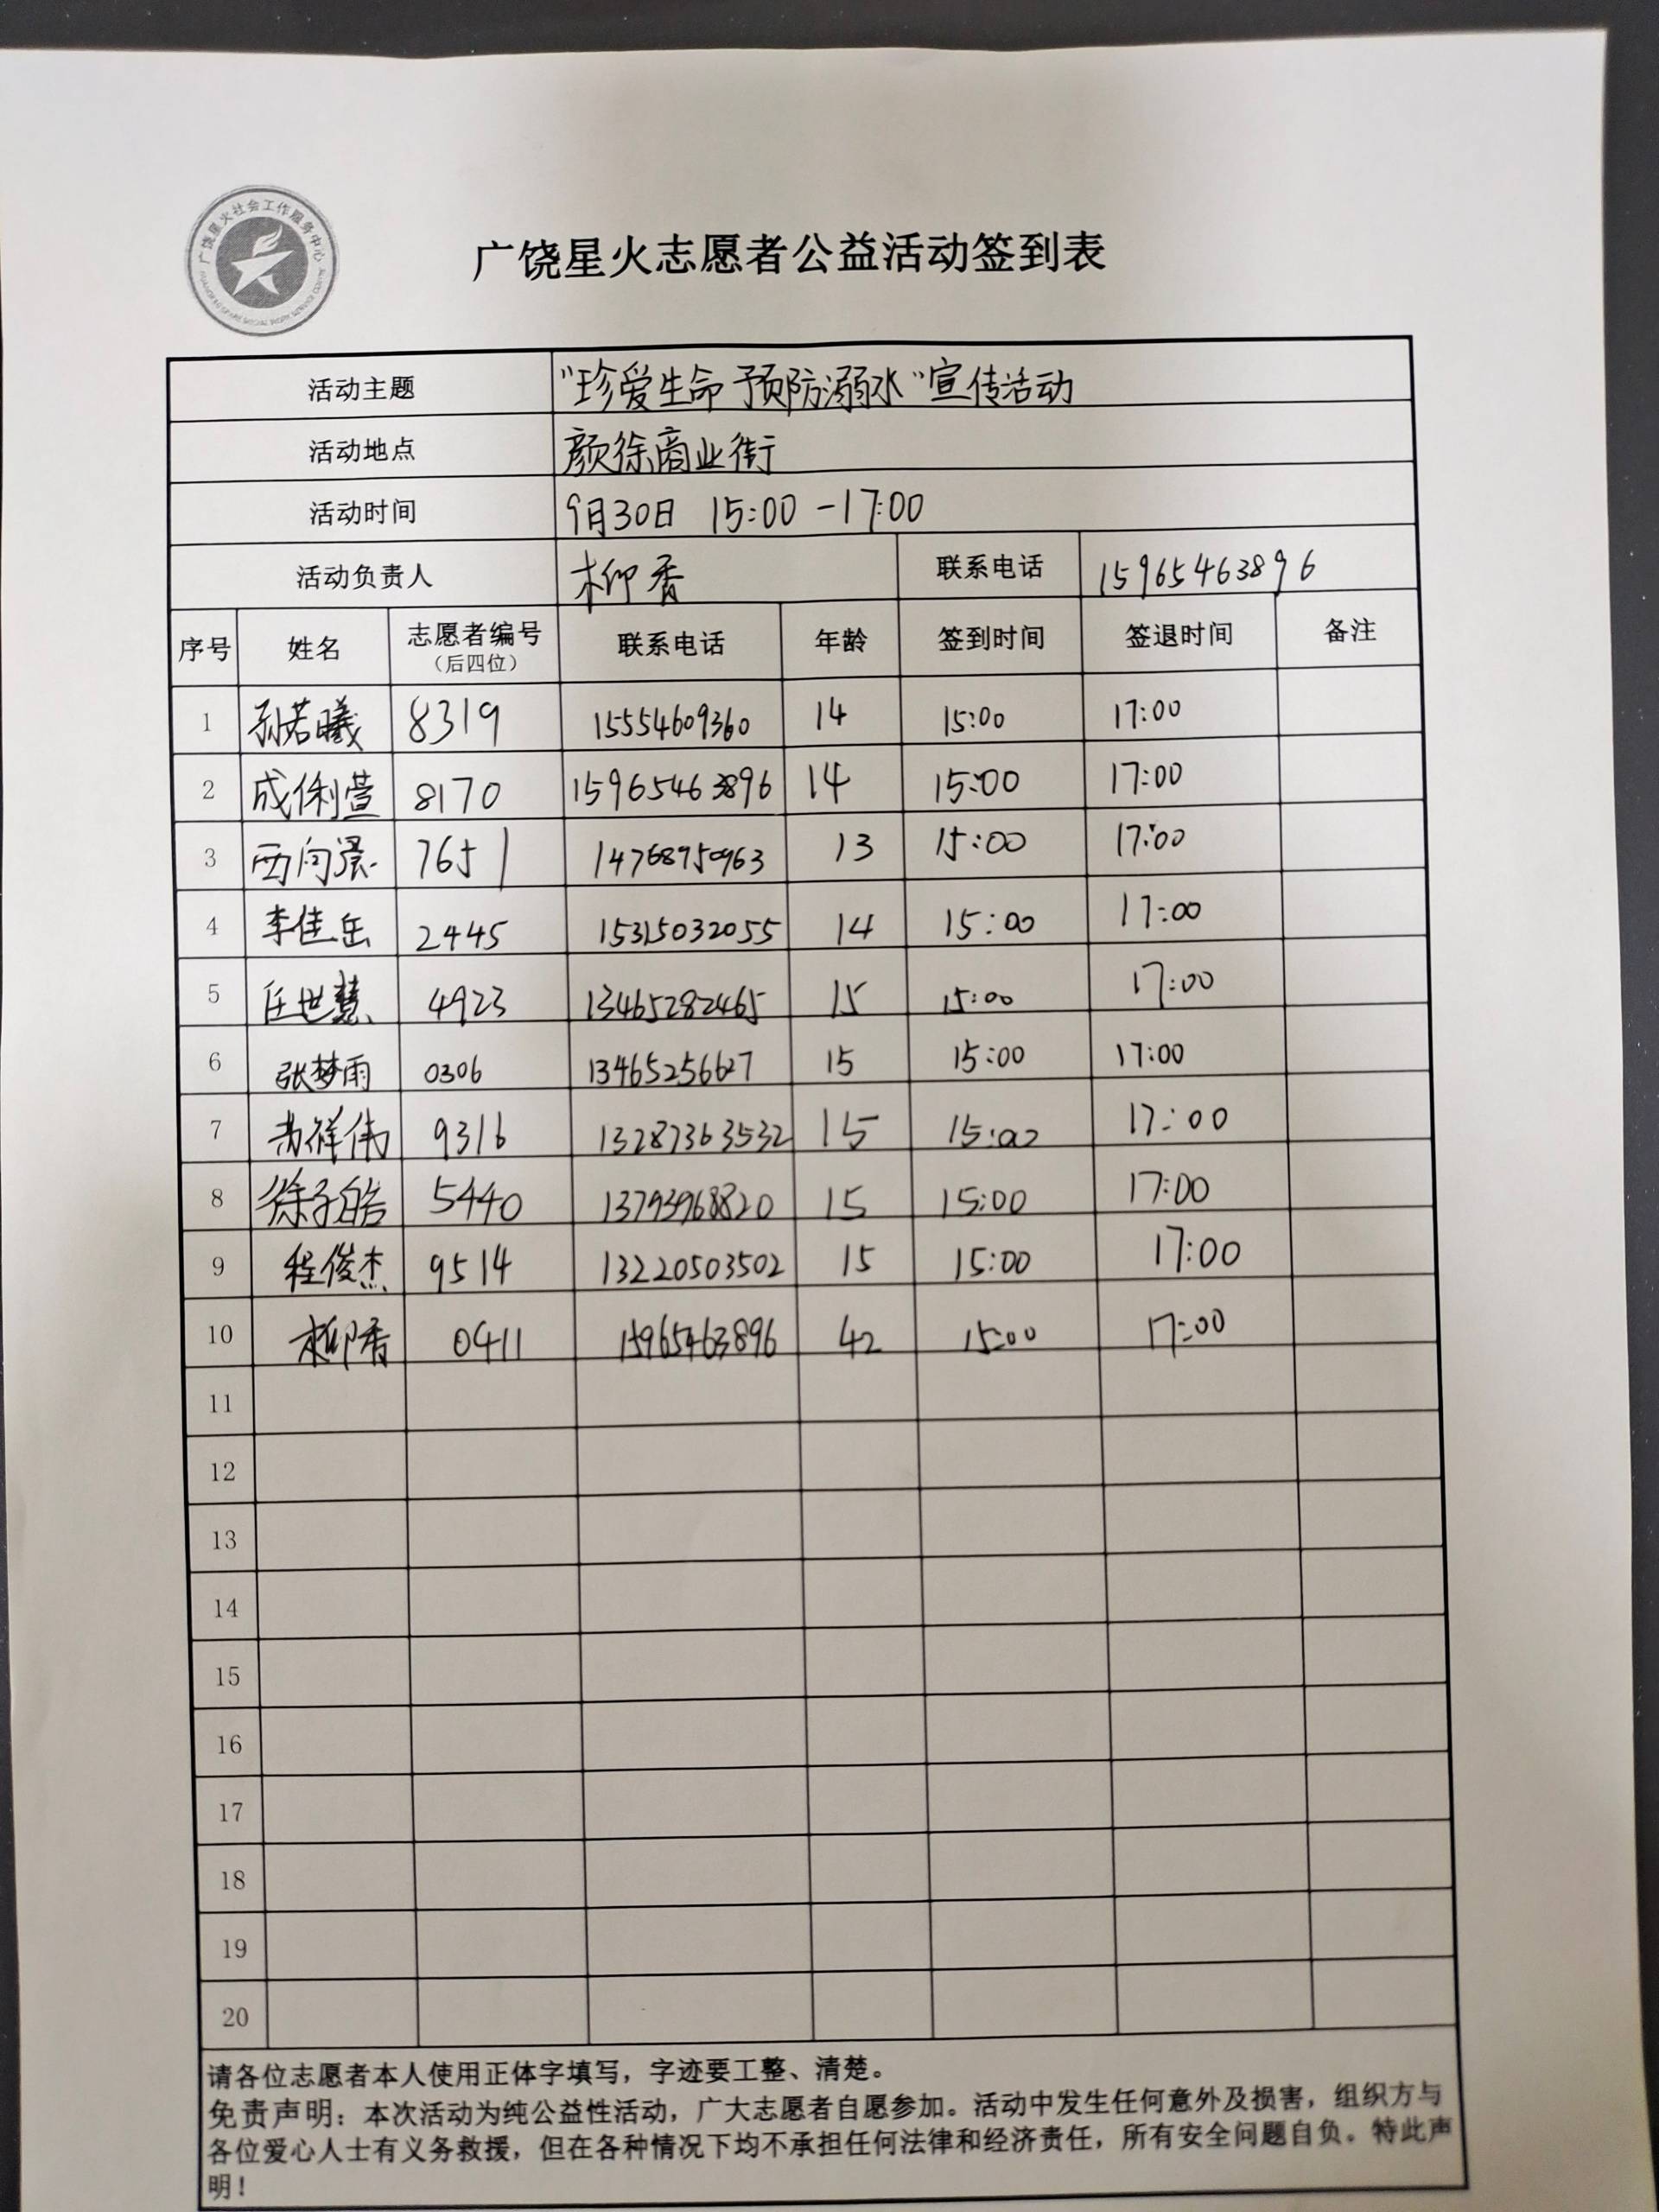 广饶星火社会工作服务中心
广饶星火志愿者公益活动签到表
活动主题 “珍爱生命 预防溺水”宣传活动
活动地点 颜徐商业街
活动时间 9月30日 15:00-17:00
活动负责人 柳香 联系电话 15965463896
序号 姓名 志愿者编号（后四位） 联系电话 年龄 签到时间 签退时间 备注
1 孙若曦 8319 15554609360 14 15:00 17:00
2 成俐萱 8170 15965463896 14 15:00 17:00
3 7651 14768950963 13 15:00 17:00
4 李佳岳 2445 15315032055 14 15:00 17:00
5 任世慧 4923 13465282465 15 15:00 17:00
6 张梦雨 0306 13465256627 15 15:00 17:00
7 9316 13287363532 15 15:00 17:00
8 徐子皓 5440 13793968820 15 15:00 17:00
9 程俊杰 9514 13220503502 15 15:00 17:00
10 柳香 0411 15965463896 42 15:00 17:00
11
12
13
14
15
16
17
18
19
20
请各位志愿者本人使用正体字填写，字迹要工整、清楚。
免责声明：本次活动为纯公益性活动，广大志愿者自愿参加。活动中发生任何意外及损害，组织方与
各位爱心人士有义务救援，但在各种情况下均不承担任何法律和经济责任，所有安全问题自负。特此声
明！